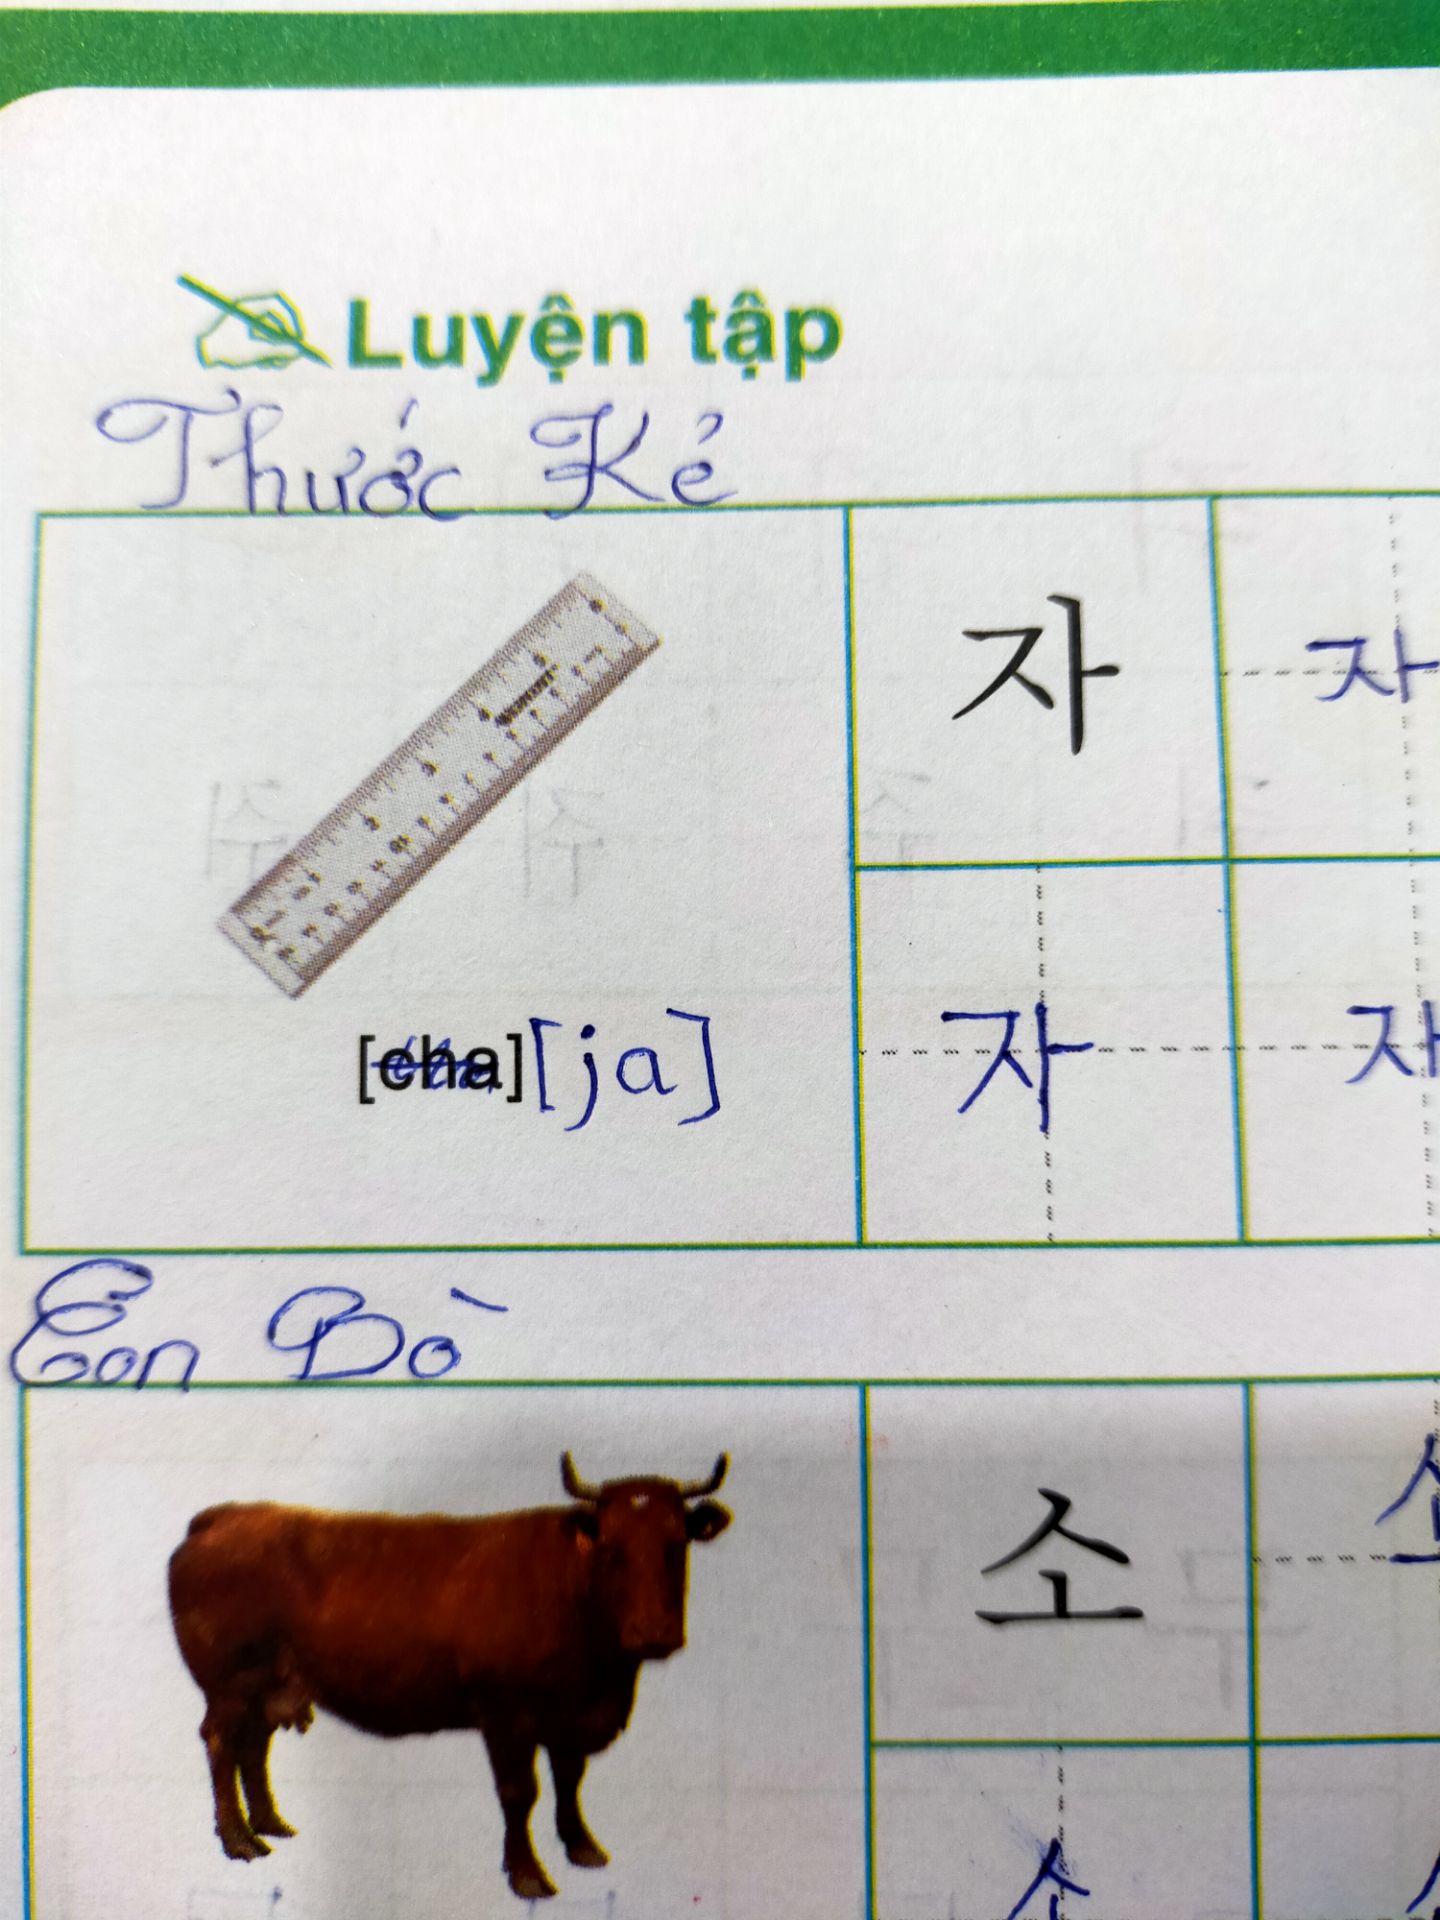 Luyện tập
Thước Kẻ
자 자
[cha] [ja]
자 자
Con Bò
소 소
소